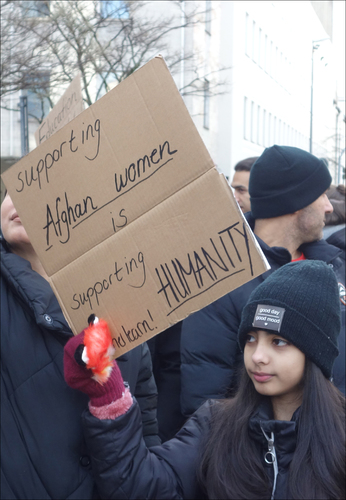 Education
supporting
Afghan women
is
supporting
HUMANITY
learn!
good day
good mood